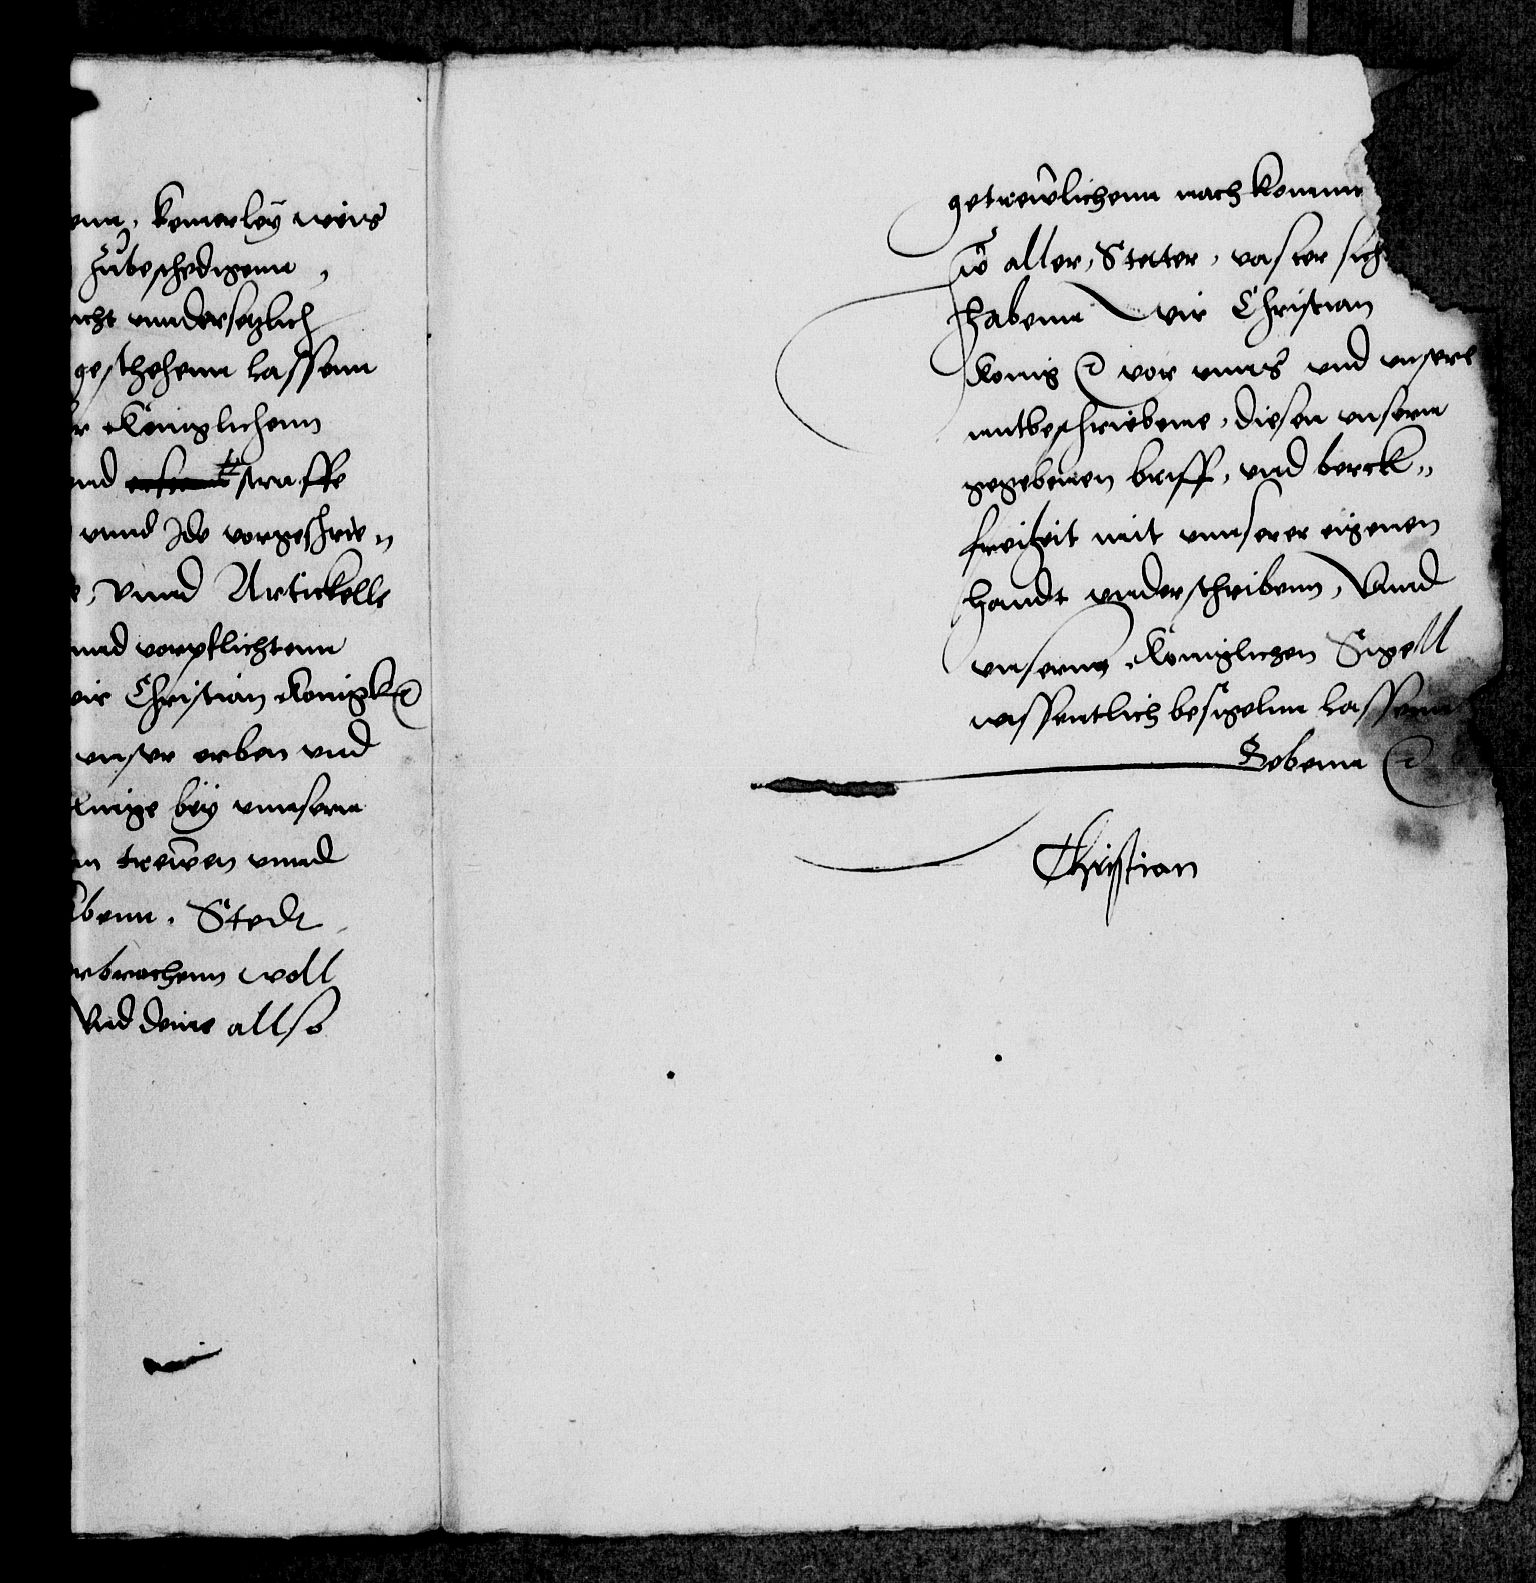 enn, keinerleÿ weis
zubeschedigenn,
icht vnndersetzlich
geschehenn lassenn
r Königlichenn
nd straffe
vnnd Ide vorgeschrie„
e, Vnnd Artickelle
nnd vorpflichtenn
wir Christian Konigk ꝛc
vnser erben vnd
bÿ vnnserm
nn trewen vnnd
benn, Stedt
erbrochenn woll
Vnd deme allso
getrewlichenn nach komme
zu aller, Steter, vaster sich
habenn wir Christian
Konig ꝛc vor vnns vnd vnsere
mitbeschriebene, diesen vnsern
gegebenen briff, vnd berck„
freiheit mit vnnserer eigenen
handt vnderschribenn, Vnnd
vnserm Königlichen Sigell
wissentlich besigelnn lassenn
Gebenn ꝛc
Christian